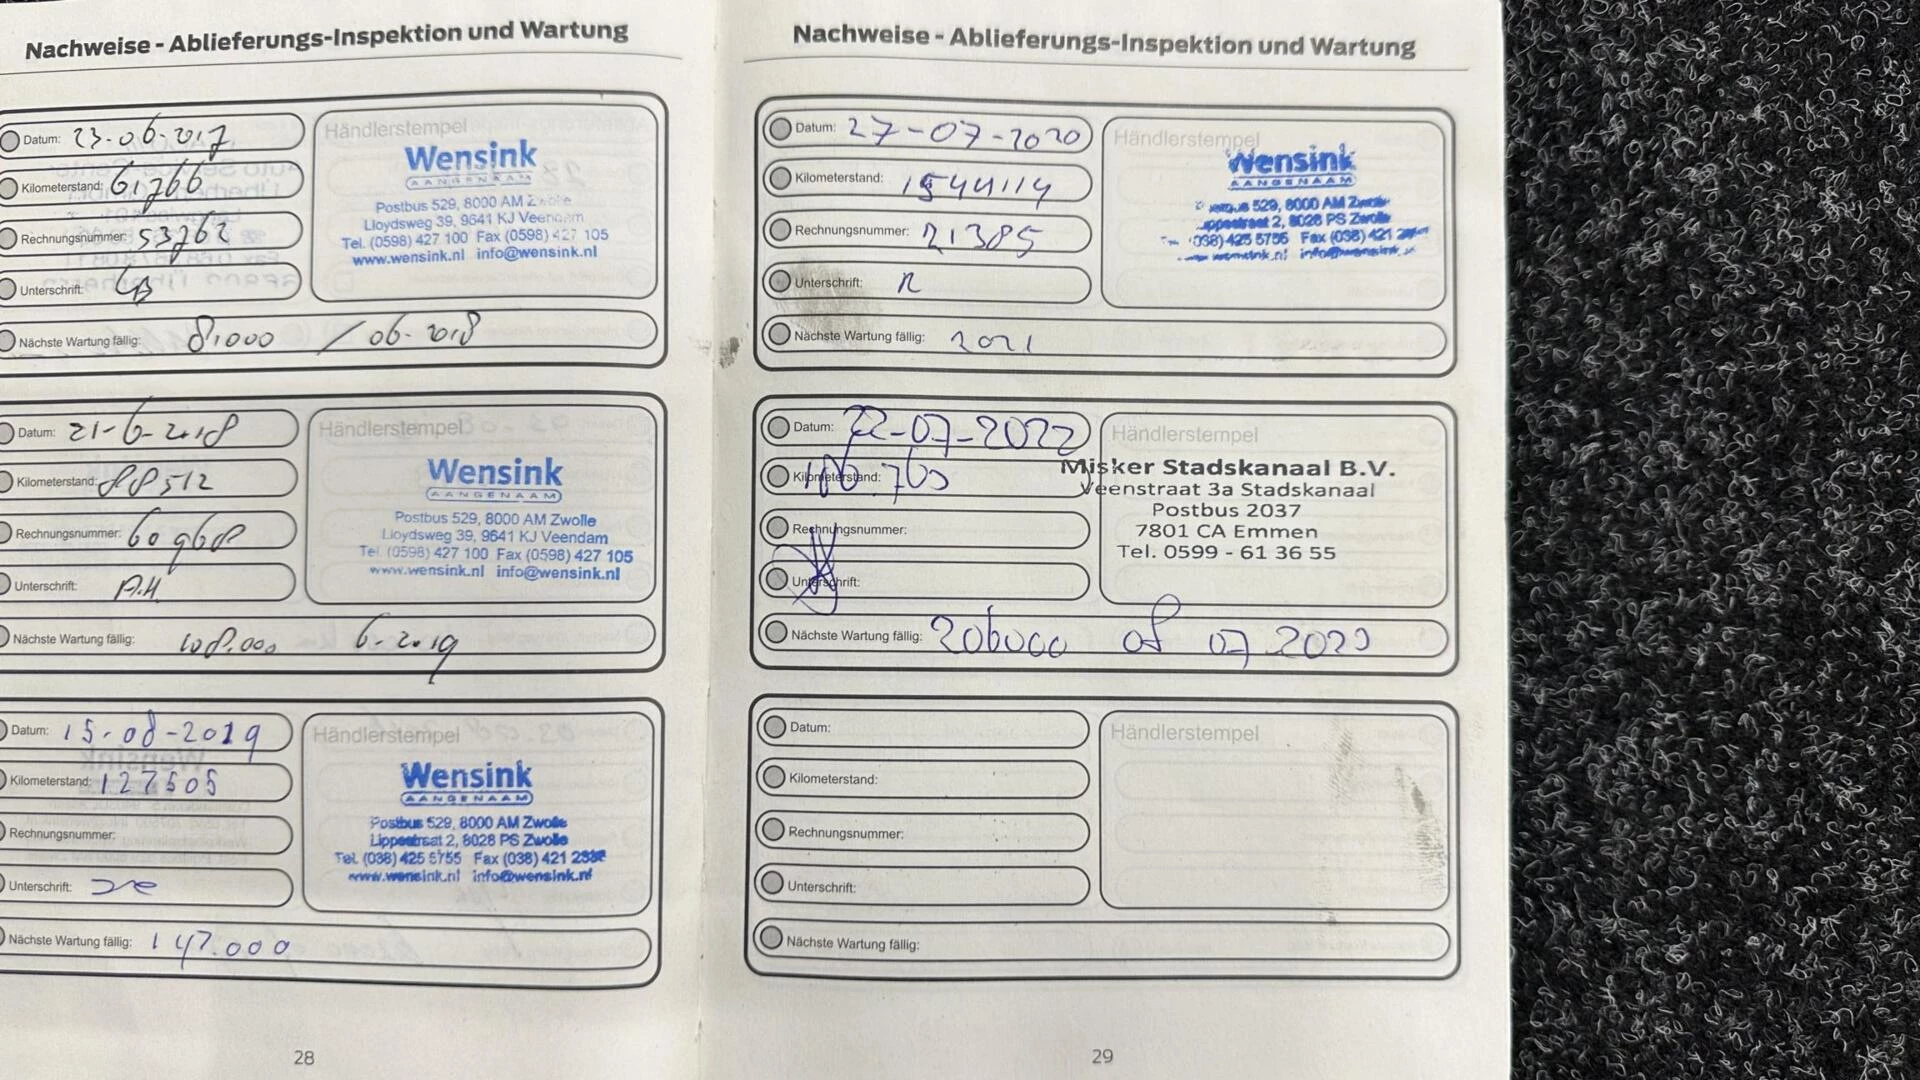 Nachweise - Ablieferungs-Inspektion und Wartung
Datum: 23-06-2017
Kilometerstand: 61766
Rechnungsnummer: 53762
Unterschrift:
Nächste Wartung fällig: 81000 / 06-2018
Händlerstempel
Wensink
AANGENAAM
Postbus 529, 8000 AM Zwolle
Lloydsweg 39, 9641 KJ Veendam
Tel. (0598) 427 100 Fax (0598) 427 105
www.wensink.nl info@wensink.nl
Datum: 21-6-2018
Kilometerstand: 88512
Rechnungsnummer: 60968
Unterschrift: A.H
Nächste Wartung fällig: 108.000 6-2019
Händlerstempel
Wensink
AANGENAAM
Postbus 529, 8000 AM Zwolle
Lloydsweg 39, 9641 KJ Veendam
Tel. (0598) 427 100 Fax (0598) 427 105
www.wensink.nl info@wensink.nl
Datum: 15-08-2019
Kilometerstand: 127505
Rechnungsnummer:
Unterschrift:
Nächste Wartung fällig: 147.000
Händlerstempel
Wensink
AANGENAAM
Postbus 529, 8000 AM Zwolle
Lippestraat 2, 8028 PS Zwolle
Tel. (038) 425 5755 Fax (038) 421
www.wensink.nl info@wensink.nl
28
Nachweise - Ablieferungs-Inspektion und Wartung
Datum: 27-07-2020
Kilometerstand:
Rechnungsnummer: 21385
Unterschrift: R
Nächste Wartung fällig: 2021
Händlerstempel
Wensink
AANGENAAM
529, 8000 AM Zwolle
2, 8028 PS Zwolle
(038) 425 5755 Fax (038) 421
Datum: 22-07-2022
Kilometerstand:
Rechnungsnummer:
Unterschrift:
Nächste Wartung fällig: 206000 of 07 2023
Händlerstempel
Misker Stadskanaal B.V.
Veenstraat 3a Stadskanaal
Postbus 2037
7801 CA Emmen
Tel. 0599 - 61 36 55
Datum:
Kilometerstand:
Rechnungsnummer:
Unterschrift:
Nächste Wartung fällig:
Händlerstempel
29